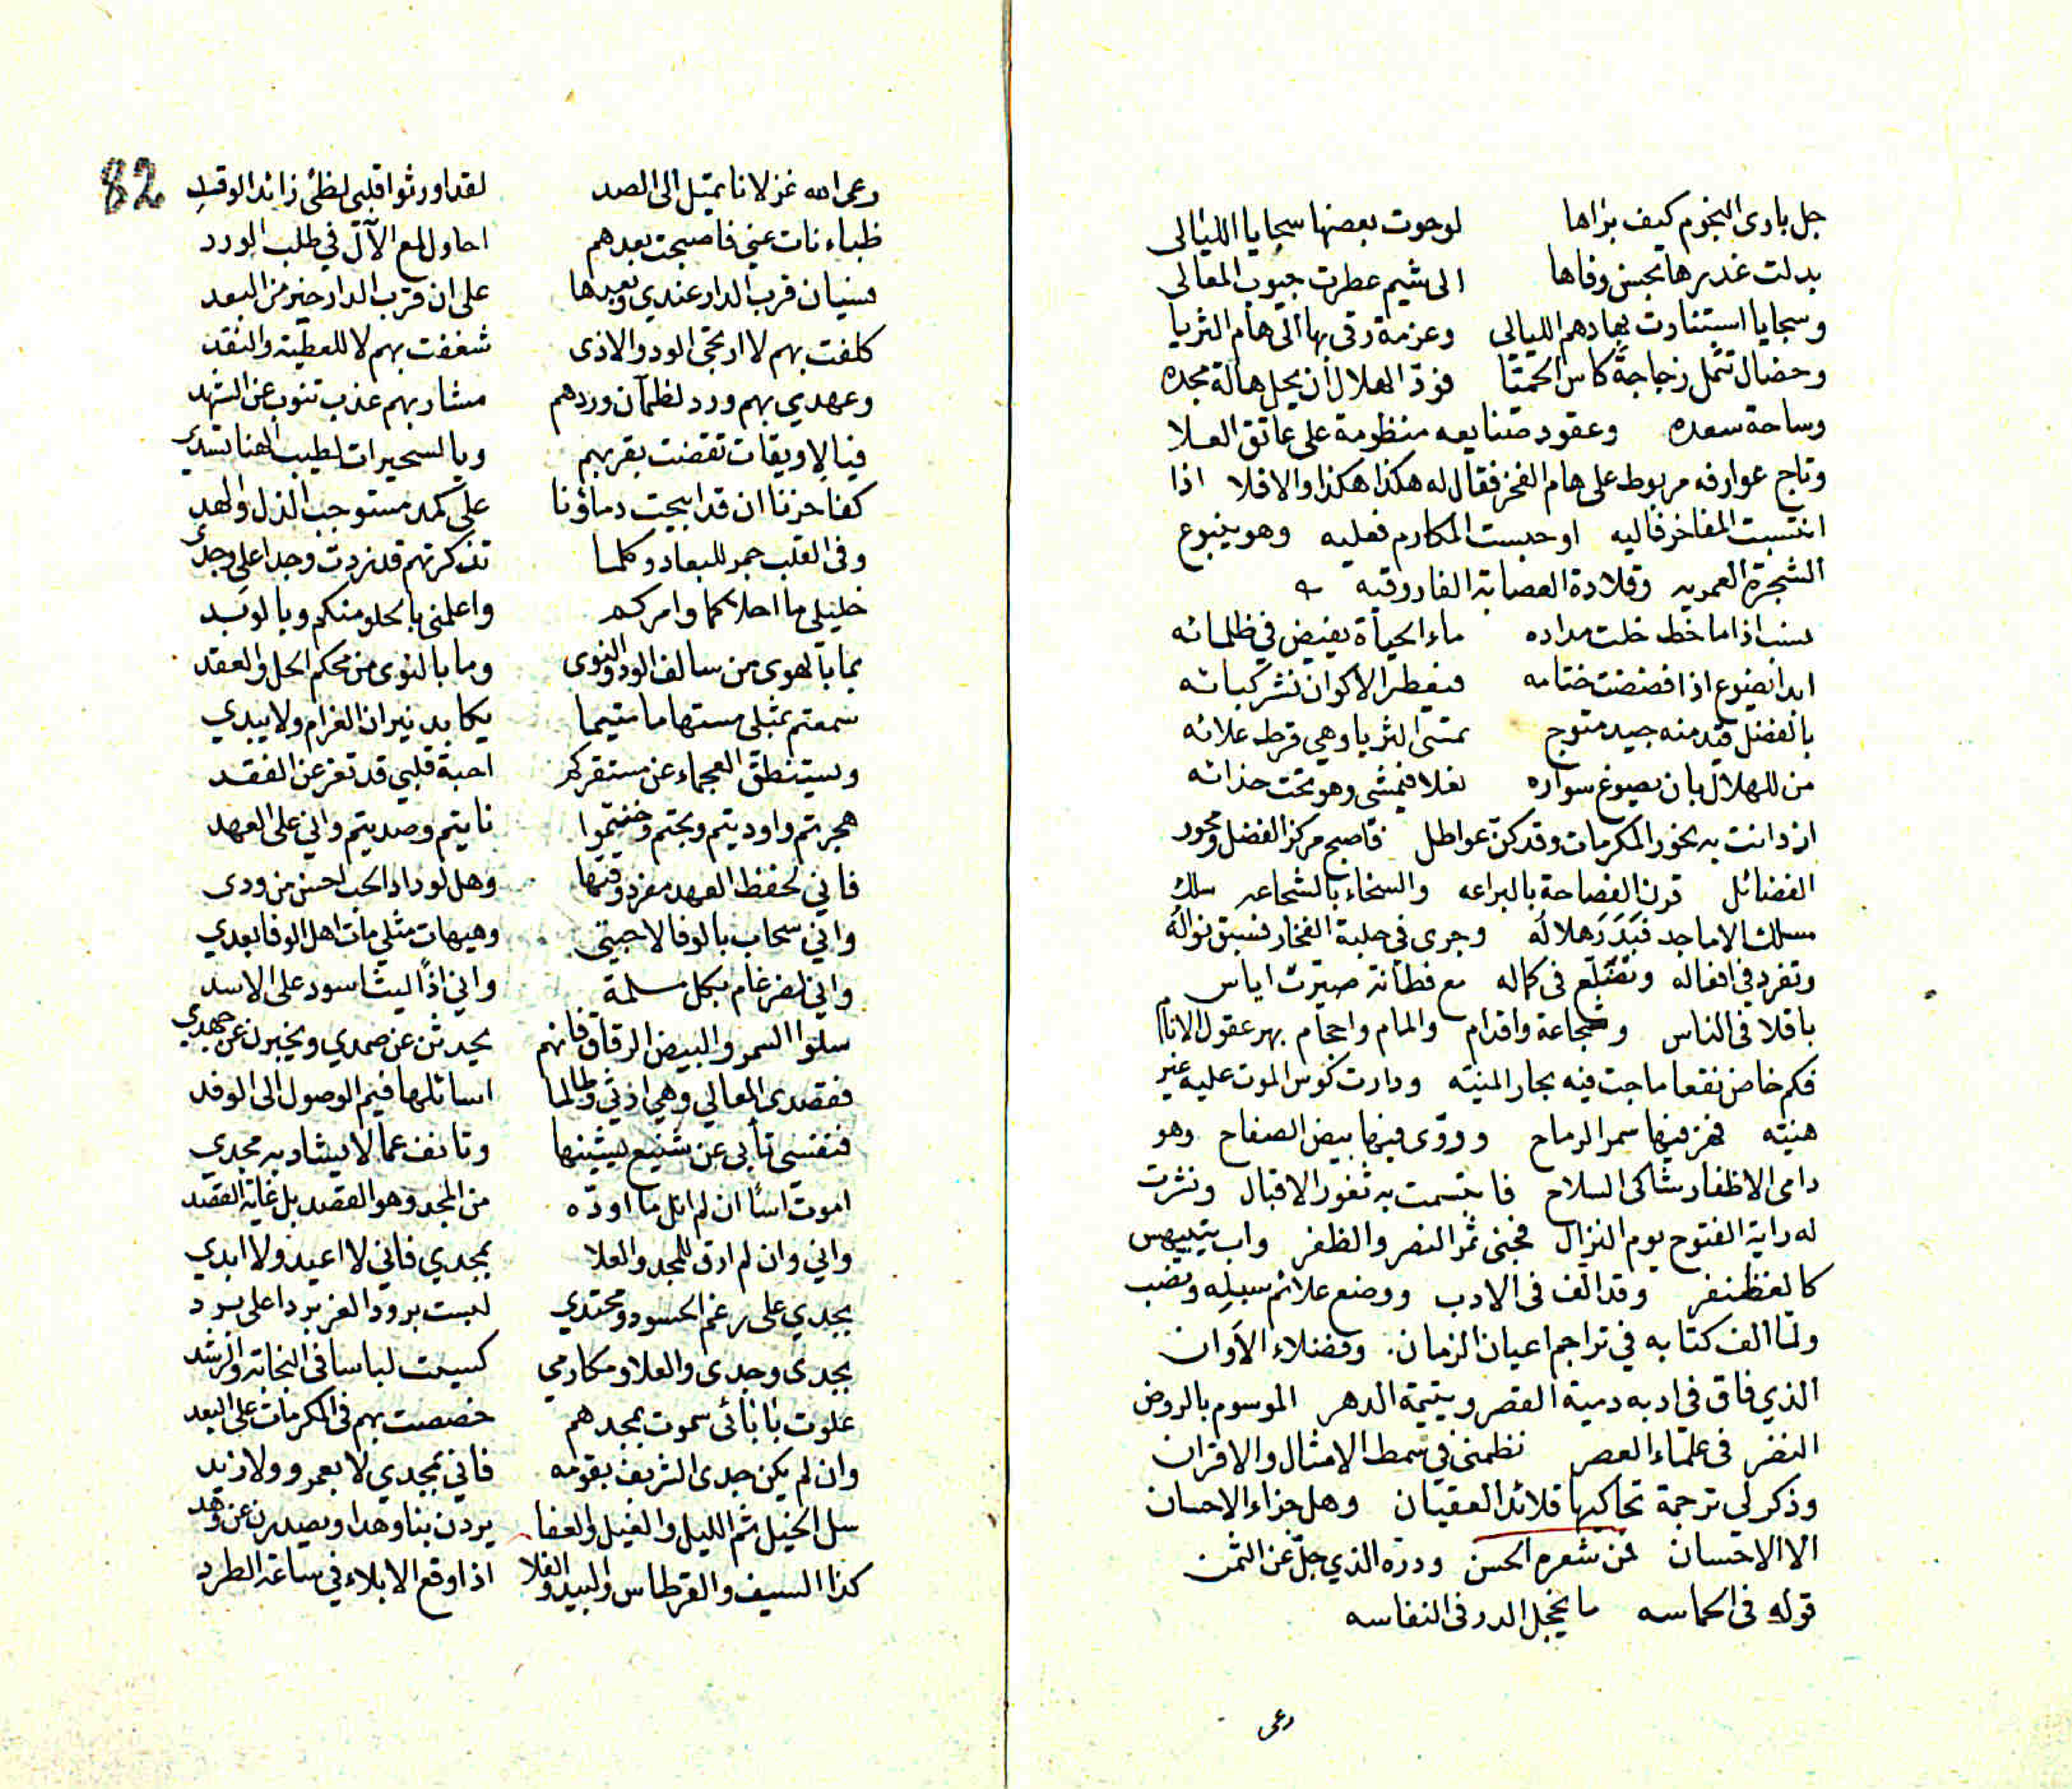 جل بارى النجوم كيف براها لو حوت بعضها سجايا الليالى
بدلت غدرها بحسن وفاها الى شيم عطرت جيوب المعالى
وسجايا استنارت بها دهم الليالى وعزمة رقى بها الى هام الثريا
وخصال تثمل زجاجة كاس الحميّا فودّ الهلال أن يحل هالة مجده
وساحة سعده وعقود صنايعه منظومة على عاتق العلا
وتاج عوارفه مربوط على هام الفخر فقال له هكذا هكذا والا فلا اذا
انتسبت المفاخر فاليه او حبست المكارم فعليه وهو ينبوع
الشجرة العمريه وقلادة العصابة الفاروقيه
ندب اذا ما خط خلت مداده ماء الحياة يفيض في ظلمائه
ابدا يضوع اذا فضضت ختامه فيعطر الاكوان نشر كبائه
بالفضل قيد منه جيد متوج تمشى الثريا وهي قرط علائه
من للهلال بان يصوغ سواره نعلا فيمشى وهو تحت حذائه
ازدانت به نحور المكرمات وقد كنّ عواطل فاصبح مركز الفضل ومحور
الفضائل قرن الفصاحة بالبراعه والسخاء بالشجاعه سلك
مسلك الاماجد فبَدَرَ هلاله وجرى في حلبة الفخار فسبق نواله
وتفرد في افعاله وتضلع فى كماله مع فطانة صيّرت اياس
باقلا فى الناس وشجاعة واقدام والمام واحجام بهر عقول الانام
فكم خاض نقعا ماجت فيه بحار المنيّه ودارت كؤس الموت عليه غير
هنيّه فهز فيها سمر الرماح وروّى فيها بيض الصفاح وهو
دامى الاظفار شاكى السلاح فابتسمت به ثغور الاقبال ونشرت
له راية الفتوح يوم النزال فجنى ثمر النصر والظفر واب يتبيهس
كالغظنفر وقد الف فى الادب ووضع علائم سبيله ونصب
ولما الف كتابه في تراجم اعيان الزمان. وفضلاء الاَوان
الذي فاق في ادبه دمية القصر ويتيمة الدهر الموسوم بالروض
النضر فى علمَاء العصر نظمنى في سمط الامثال والاقران
وذكر لى ترجمة تحاكيها قلائد العقيان وهل جزاء الاحسان
الا الاحسان فمن شعره الحسن ودره الذي جلّ عن الثمن
قوله فى الحماسه ما يخجل الدر فى النفاسه
رعى
82
رعى الله غزلانا تميل الى الصد لقد اورثوا قلبى لظىً زائد الوقد
ظباء نات عني فاصبحت بعدهم احاول لمع الآل في طلب الورد
فسيان قرب الدار عندي وبعدها على ان قرب الدار خير من البعد
كلفت بهم لا ارتجى الود والاذى شغفت بهم لا للعطية والنقد
وعهدي بهم ورد لظمآن وردهم مشاربهم عذب تنوب عن الشهد
فيا لاويقات تقضت بقربهم ويا لسحيرات لطيب الهنا تسدي
كفا حزنا ان قد ابيحت دماؤنا على كمد مستوجب الذل والهد
وفى القلب جمر للبعاد وكلما تذكرتهم قد زدت وجدا على وجدي
خليلى ما احلاكما وامركم واعلمنى بالحلو منكم وبالوبد
بما بالهوى من سالف الود والنوى وما بالنوى من محكم الحل والعقد
سمعتم بمثلى مستهاما متيما يكابد نيران الغرام ولا يبدي
ويستنطق العجماء عن مستقركم احبة قلبي قد تعز عن الفقد
هجرتم واوديتم وبحتم وخنتموا نايتم وصديتم واني على العهد
فاني لحفظ العهد مفرد وقتها وهل لوداد الحب احسن من ودى
واني سحاب بالوفا لاحبتي وهيهات مثلي مات اهل الوفا بعدي
واني لضرغام بكل مسلمة واني اذًا ليث اسود على الاسد
سلوا السمر والبيض الرقاق فانهم يحدثن عن صمدي ويخبرن عن جهدي
فقصدى المعالي وهي اذني وطالما اسائلها فيم الوصول الى الوفد
فنفسى تأبى عن شنيع يشينها وتانف عما لا يشاد به مجدي
اموت اسًا ان لم انل ما اودّه من المجد وهو القصد بل غاية القصد
واني وان لم ارق للمجد والعلا بمجدي فاني لا اعيد ولا ابدي
بجدي على رغم الحسود ومحتدي لبست برود العز بردا على برد
بجدى وجدى والعلا ومكارمي كسيت لباسا فى النجابة والرشد
علوت بابائى سموت بمجدهم خصصت بهم فى المكرمات على البعد
وان لم يكن جدى الشريف بقومه فاني بمجدي لا بعمرو ولا زيد
سل الخيل ثم الليل والغيل والعفا يردن بنا وهدا ويصدرن عن وهد
كذا السيف والقرطاس والبيد والفلا اذا وقع الابلاء في ساعة الطرد